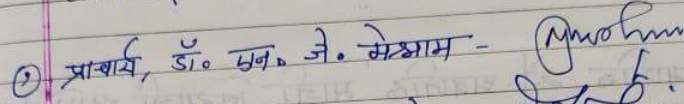 १) प्राचार्य, डॉ. एन. जे. मेश्राम -